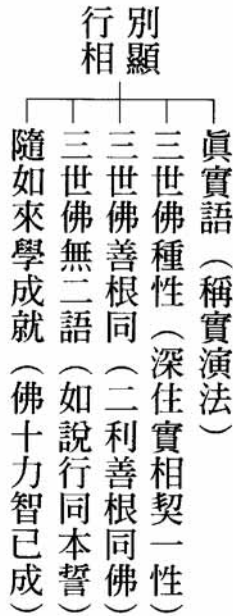 別顯
行相
眞實語（稱實演法）
三世佛種性（深住實相契一性）
三世佛善根同（二利善根同佛）
三世佛無二語（如說行同本誓）
隨如來學成就（佛十力智已成）